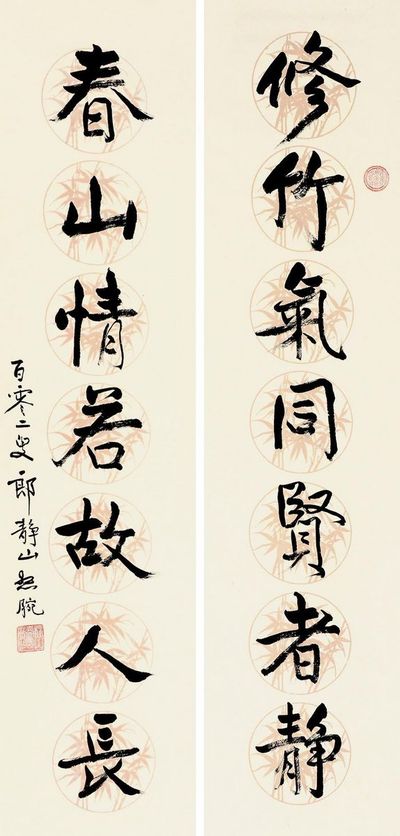 修竹氣同賢者静
春山情若故人長
百零二叟郎静山懸腕